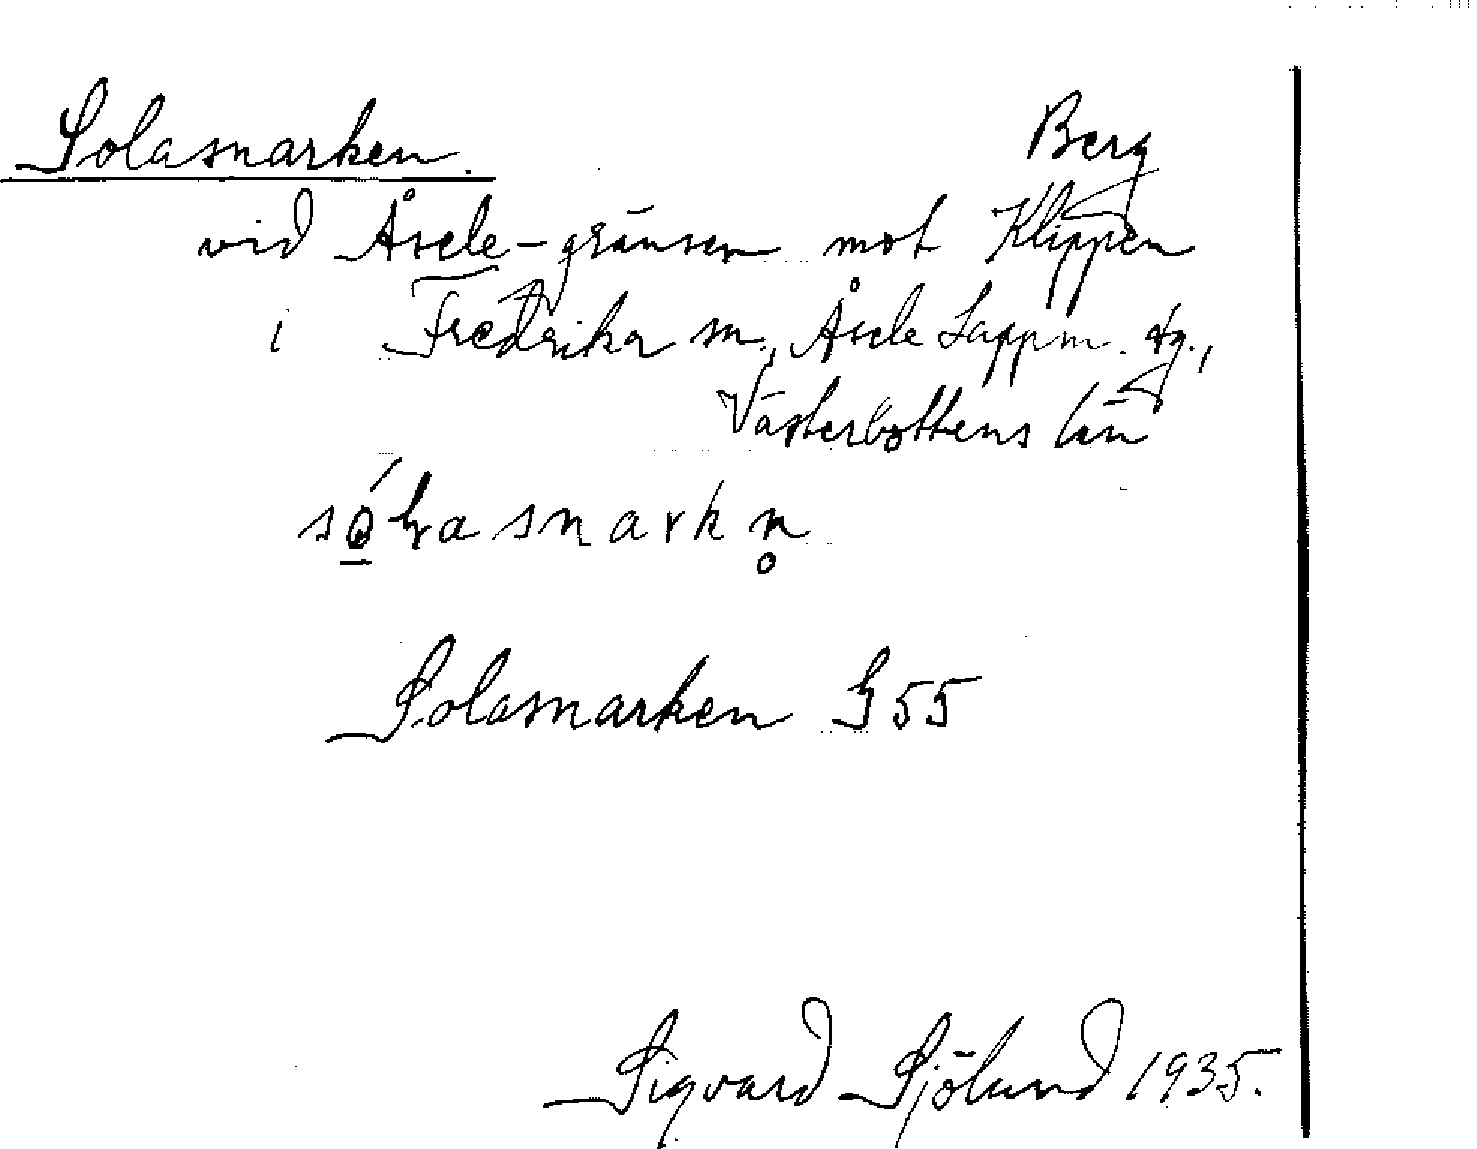 Solasmarken.
Berg
vid Åsele-gränsen mot Klippen
i Fredrika sn, Åsele Lappm. dg.,
Västerbottens län
Solasmarken G55
Sigvard Sjölund 1935.